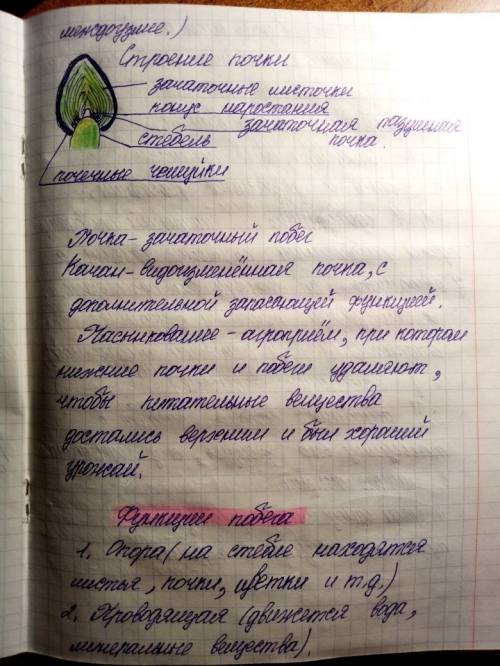 междоузлие.)
Строение почки
зачаточные листочки
конус наростания
зачаточная пазушная
почка.
стебель
почечные чешуйки
Почка - зачаточный побег
Качан - видоизменённая почка, с
дополнительной запасающей функцией.
Пасынкование - агроприём, при котором
нижние почки и побеги удаляют,
чтобы питательные вещества
достались верхним и был хороший
урожай.
Функции побега
1. Опора (на стебле находятся
листья, почки, цветки и т.д.)
2. Проводящая (движется вода,
минеральные вещества).